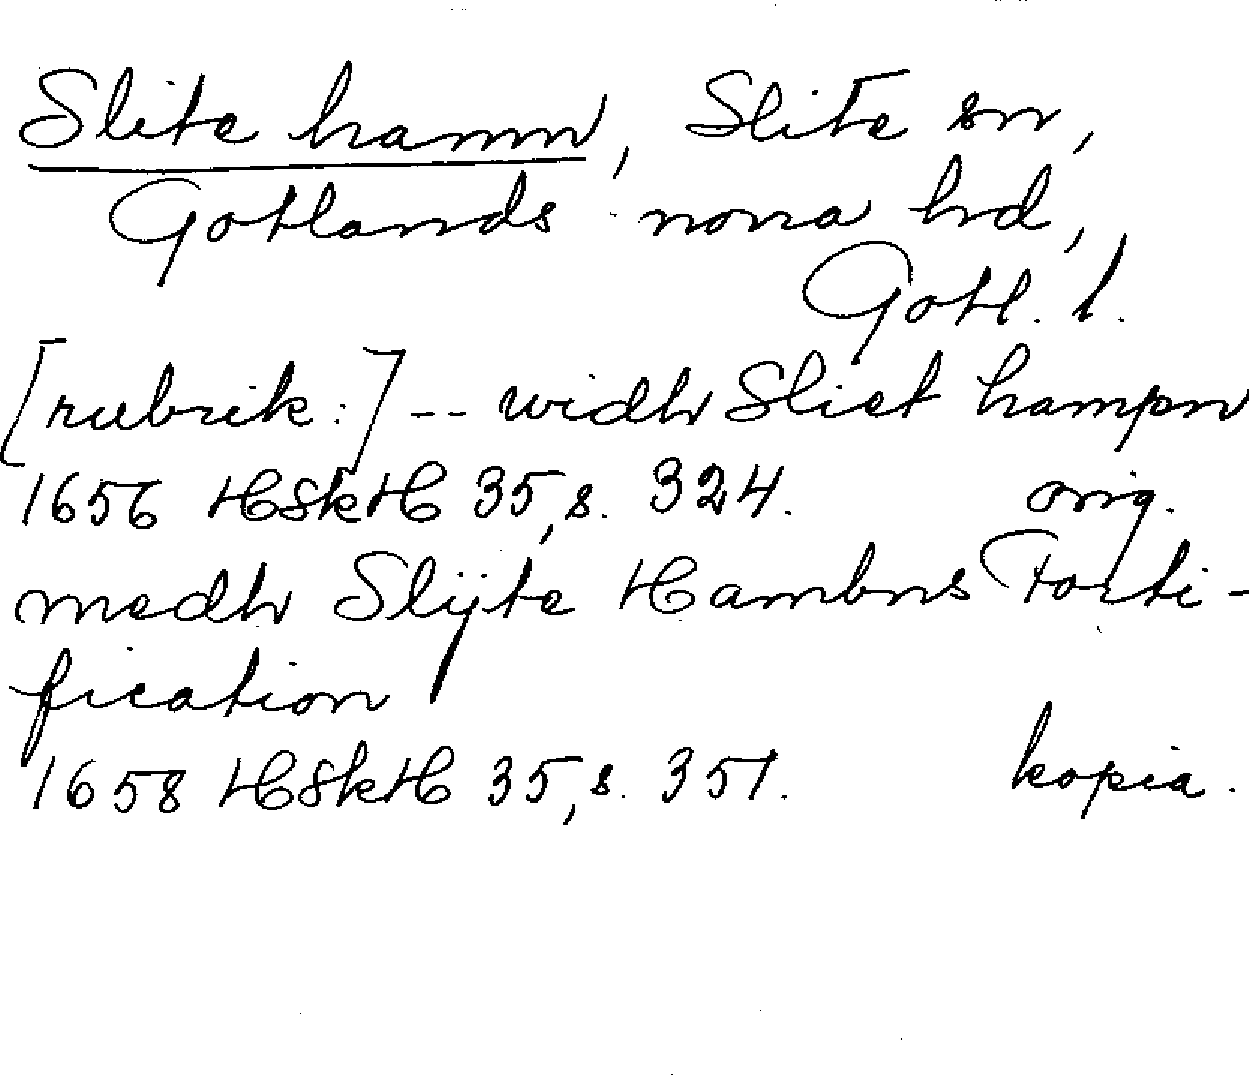 Slite hamn, Slite sn,
Gotlands norra hd,
Gotl. l.
[rubrik:] -- widh Sliet hampn
1656 HSkH 35, s. 324. orig.
medh Slÿte Hambns Forti-
fication
1658 HSkH 35, s. 351. kopia.